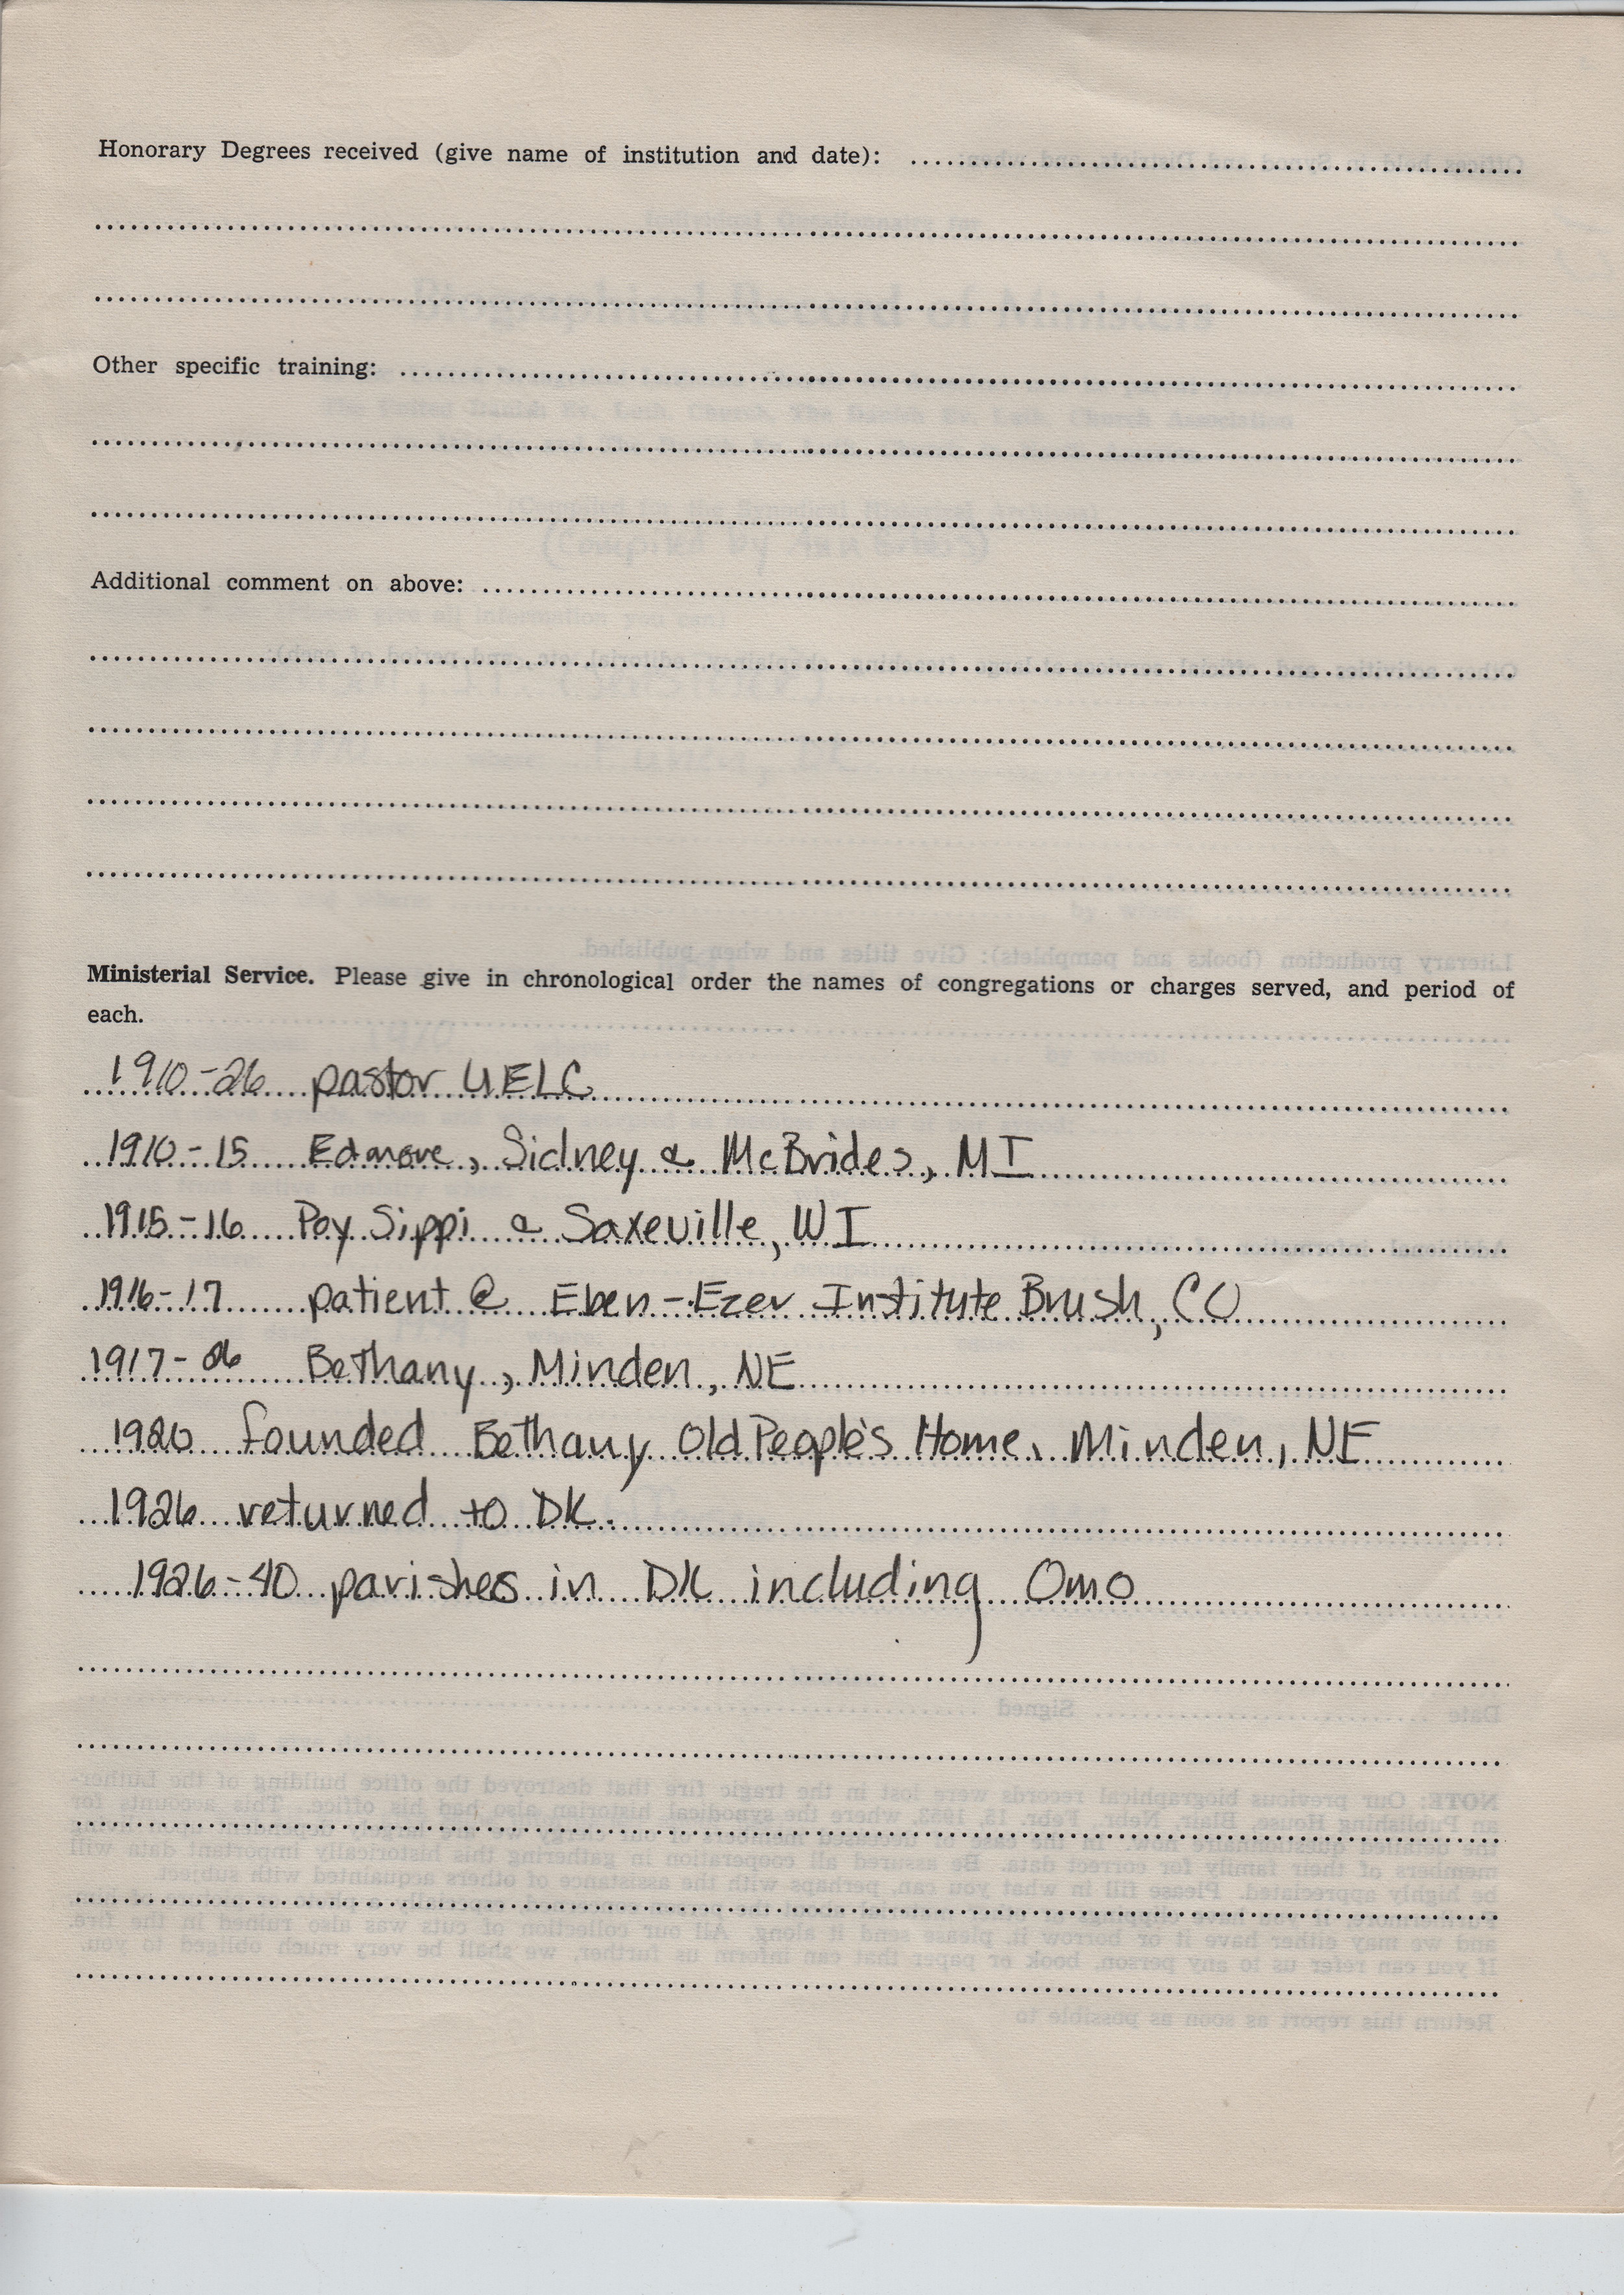 Honorary Degrees received (give name of institution and date):
Other specific training:
Additional comment on above:
Ministerial Service. Please give in chronological order the names of congregations or charges served, and period of
each.
1910-26 pastor UELC
1910-15 Edmore, Sidney & McBrides, MI
1915-16 Poy Sippi & Saxeville, WI
1916-17 patient @ Eben-Ezer Institute Brush, CO
1917- Bethany, Minden, NE
founded Bethany Old People's Home, Minden, NE
1926 returned to DK.
1926-40 parishes in DK including Omo